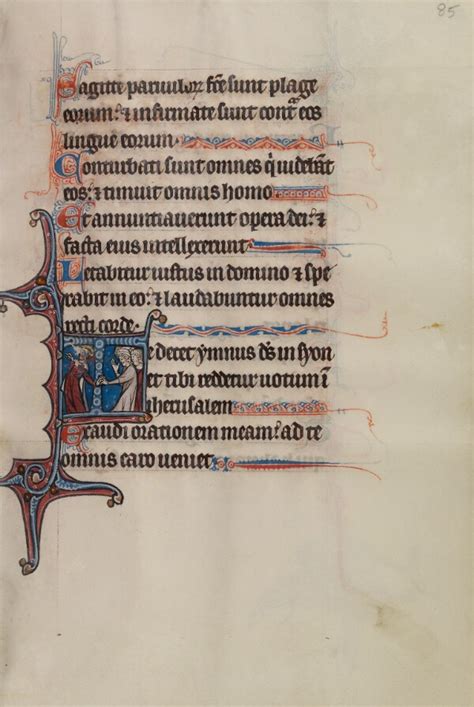 85
Sagitte parvuloꝝ fc̄e sunt plage
eorum: ⁊ infirmate sunt contᵃ eos
lingue eorum.
Conturbati sunt omnes qͥ videbāt
eos: ⁊ timuit omnis homo.
Et annuntiaverunt opera dei: ⁊
facta eius intellexerunt
Letabitur iustus in domino ⁊ spe
rabit in eo: ⁊ laudabuntur omnes
recti corde.
Te decet ymnus ds̄ in syon
et tibi reddetur votum ī
iherusalem
Exaudi orationem meam: ad te
omnis caro veniet.